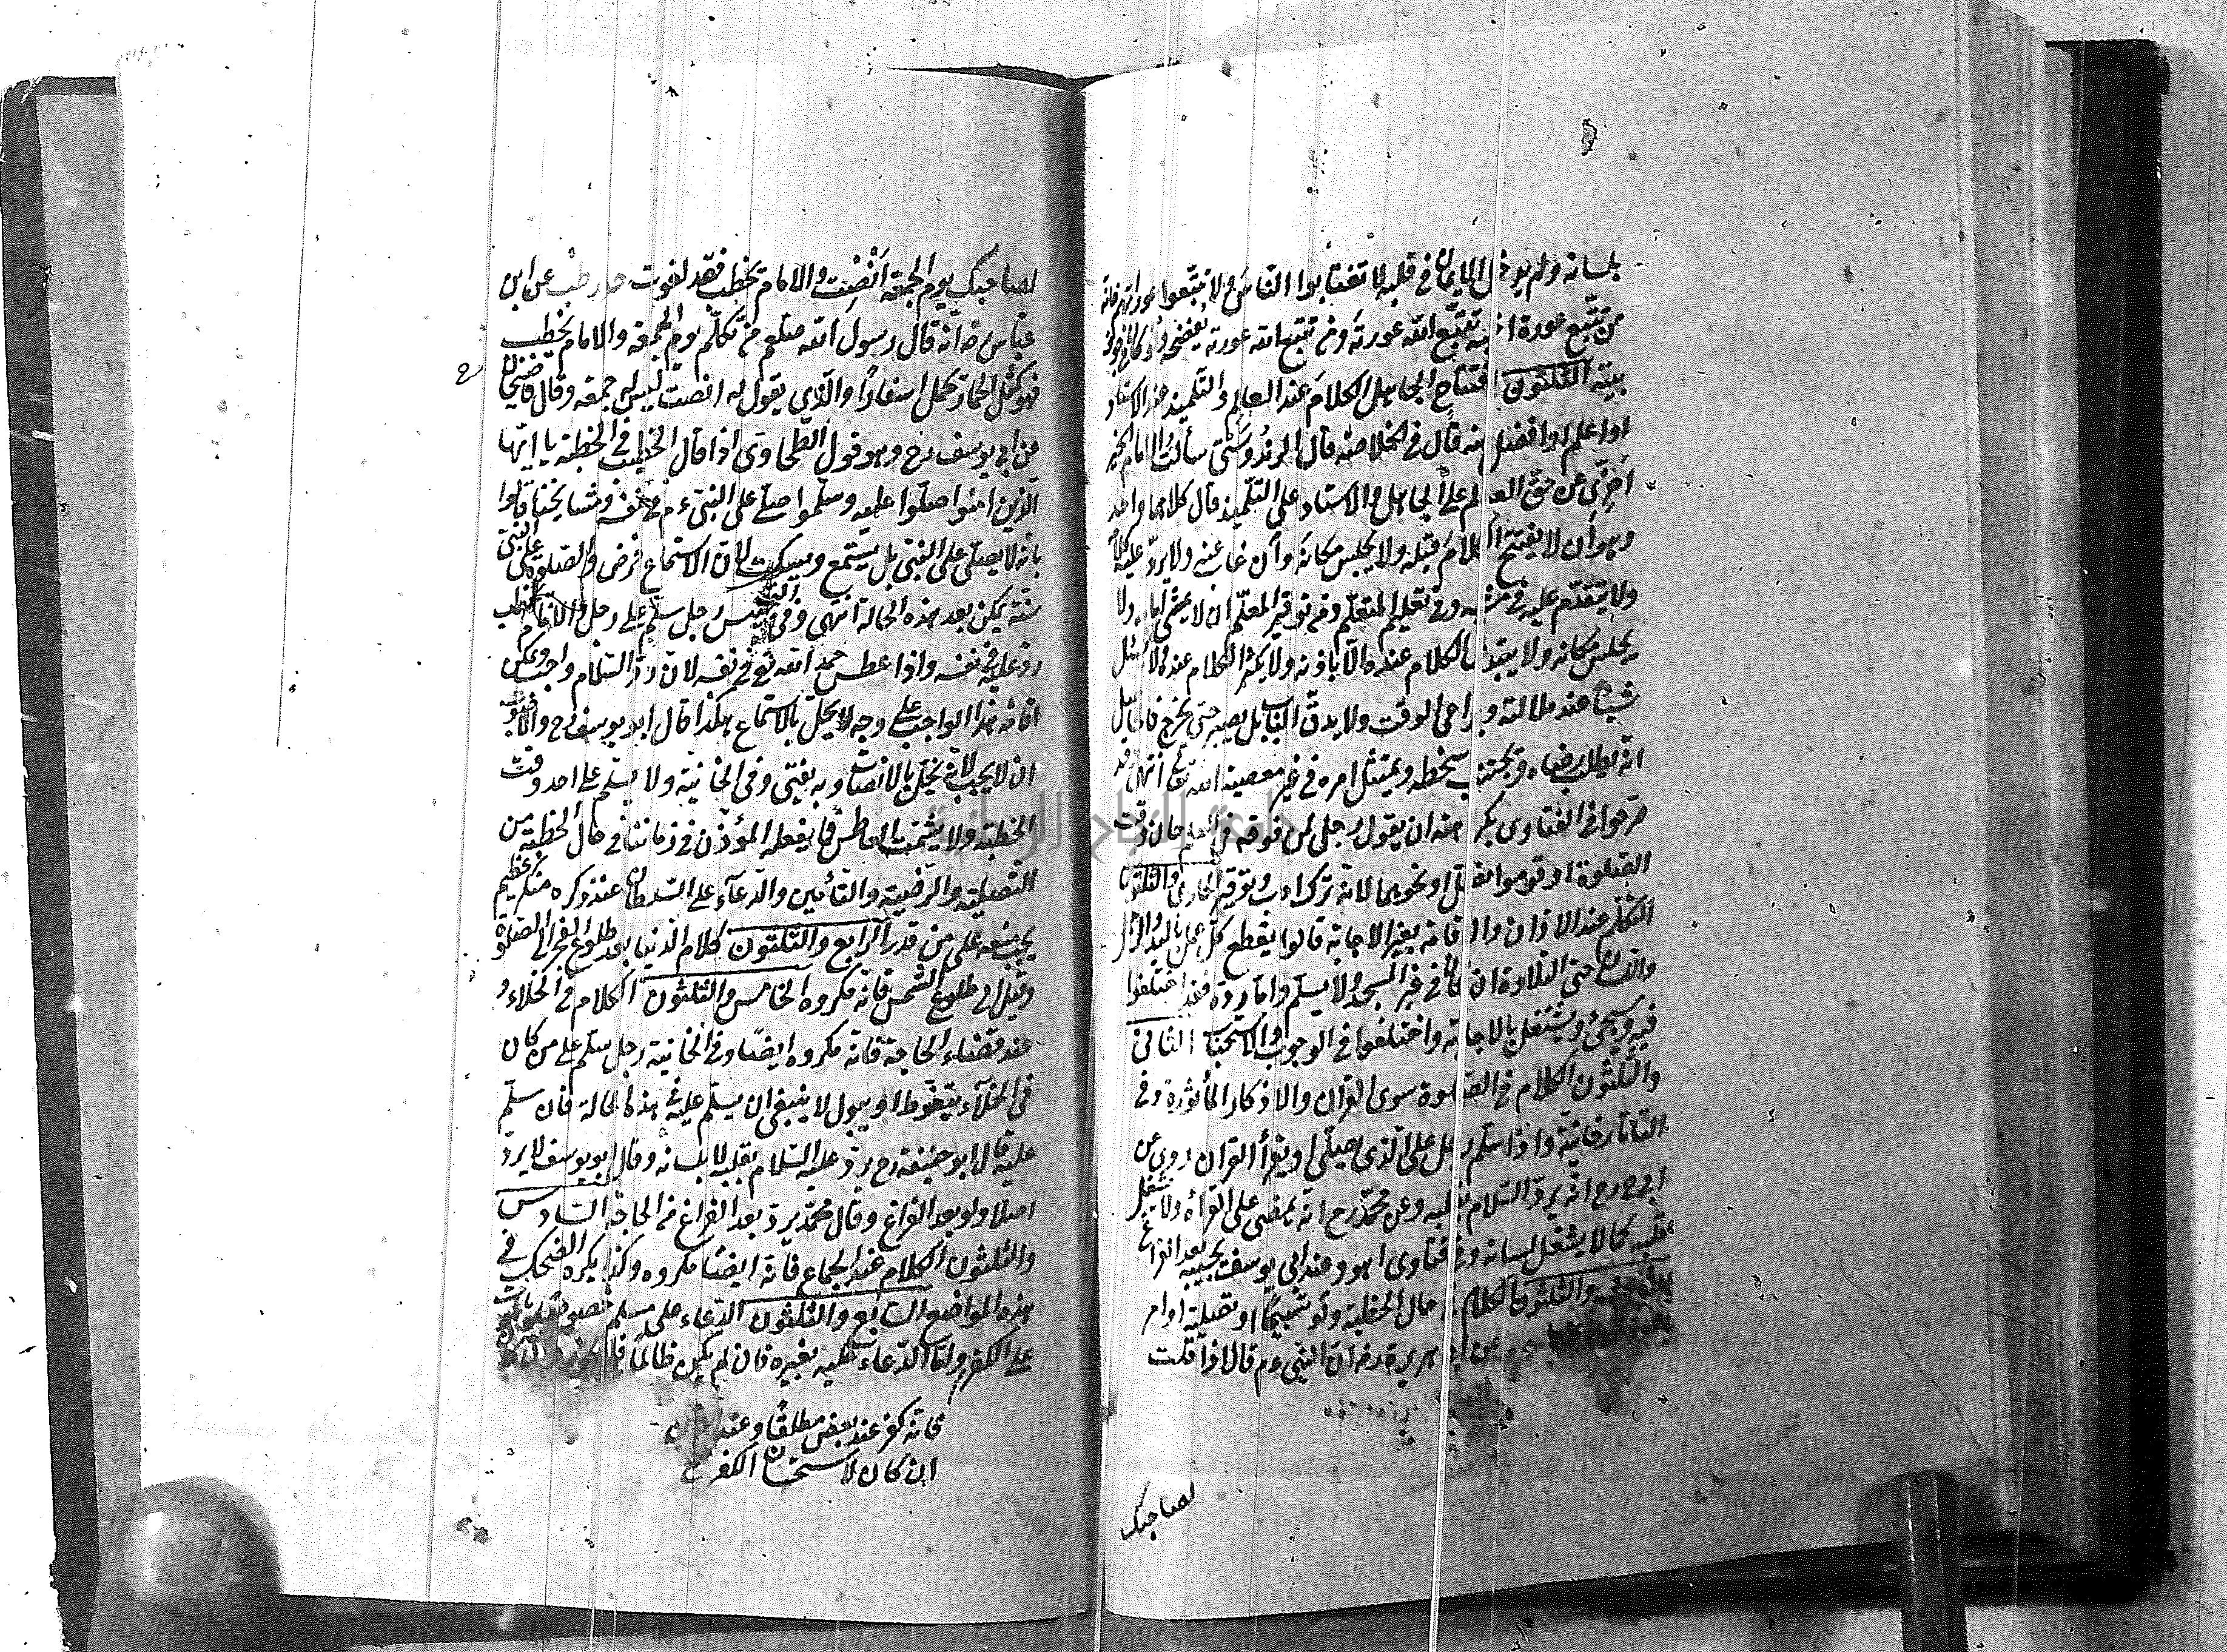 بلسانه ولم يدخل الايمان في قلبه لا تغتابوا الناس ولا تتبعوا عوراتهم فانه
من تتبع عورة اخيه تتبع الله عورته ومن تتبع الله عورته يفضحه ولو كان في جوف
بيته الثلثون افتتاح الجاهل الكلام عند العالم والتلميذ عند الاستاد
او اعلم او افضل منه قال في الخلاصة قال الزندوستى سألت الامام الخير
اخزى عن حق العالم على الجاهل والاستاد على التلميذ قال كلاهما واحد
وهو ان لا يفتتح الكلام قبله ولا يجلس مكانه وان غاب عنه ولا يرد عليه كلامه
ولا يتقدم عليه في مشيه وفي تعليم المتعلم ومن توقير المعلم ان لا يمشي امامه ولا
يجلس مكانه ولا يبتدئ بالكلام عنده الا باذنه ولا يكثر الكلام عنده ولا يسئل
شيئا عند ملالته ويراعى الوقت ولا يدق الباب بل يصبر حتى يخرج فالحاصل
انه يطلب رضاه ويجتنب سخطه ويمتثل امره في غير معصية الله تع انتهى وقد
صرحوا في الفتاوى بكراهته ان يقول رجل لمن فوقه في العلم حان وقت
الصلوة او قوموا نصلى او نحوهما لانه ترك ادب وتوقير الحادى والثلثون
التكلم عند الاذان والاقامة بغير الاجابة قالوا يقطع كل عمل باليد والرجل
واللسان حتى التلاوة ان كان في غير المسجد ولا يسلم واما رده فقد اختلفوا
فيه وسيجئ ويشتغل بالاجابة واختلفوا في الوجوب والاستحباب الثانى
والثلثون الكلام في الصلوة سوى القرآن والاذكار المأثورة وفي
التاتارخانية واذا سلم رجل على الذى يصلى او يقرأ القرآن روى عن
ابى ح رح انه يرد السلام بقلبه وعن محمد رح انه يمضى على القرأة ولا يشغل
قلبه كما لا يشغل لسانه وفي فتاوى اهو وعند ابى يوسف يجيبه بعد الفراغ
الثالث والثلثون الكلام في حال الخطبة ولو تسبيحا او تصلية او امر
عن ابى هريرة رض ان النبى ءم قال اذا قلت
لصاحبك
لصاحبك يوم الجمعة انصت والامام يخطب فقد لغوت حد رطب عن ابن
عباس رض انه قال رسول الله صلعم من تكلم يوم الجمعة والامام يخطب
فهو كمثل الحمار يحمل اسفارا والذى يقول له انصت ليس له جمعة وقال قاضيخان
عن ابى يوسف رح وهو قول الطحاوى اذا قال الخطيب في الخطبة يا ايها
الذين امنوا صلوا عليه وسلموا صلى على النبى ءم في نفسه ومشايخنا قالوا
بانه لا يصلى على النبى بل يستمع ويسكت لان الاستماع فرض والصلوة على النبى
سنة يمكن بعد هذه الحالة انتهى وفي التجنيس رجل سلم على رجل والامام يخطب
رد عليه في نفسه واذا عطس حمد الله تع في نفسه لان رد السلام واجب ويمكن
اقامة هذا الواجب على وجه لا يخل بالاستماع هكذا قال ابو يوسف رح والاصوب
ان لا يجيب لانه يخل بالانصات وبه يفتى وفي الخانية ولا يسلم على احد وقت
الخطبة ولا يشمت العاطس فما يفعله المؤذن في زماننا في حال الخطبة من
التصلية والترضية والتأمين والدعاء على السلطان عند ذكره منكر عظيم
يجب منعه على من قدر الرابع والثلثون كلام الدنيا بعد طلوع الفجر الى الصلوة
وقيل الى طلوع الشمس فانه مكروه الخامس والثلثون الكلام في الخلاء و
عند قضاء الحاجة فانه مكروه ايضا وفي الخانية رجل سلم على من كان
في الخلاء يتغوط او يبول لا ينبغى ان يسلم عليه في هذه الحالة فان سلم
عليه قال ابو حنيفة رح يرد عليه السلام بقلبه لا بلسانه وقال ابو يوسف لا يرد
اصلا ولو بعد الفراغ وقال محمد يرد بعد الفراغ من الحاجة السادس
والثلثون الكلام عند الجماع فانه ايضا مكروه وكذا يكره الضحك في
هذه المواضع السابع والثلثون الدعاء على مسلم خصوصا بالموت
على الكفر واما الدعاء عليه بغيره فان لم يكن ظالما
فانه كفر عند بعض مطلقا وعند
ان كان لاستحسان الكفر